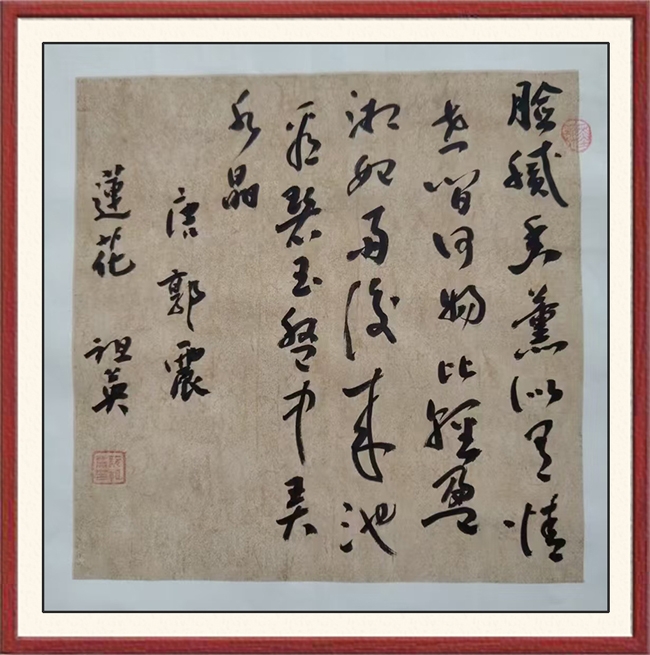 脸腻香薰似有情
世间何物比輕盈
湘妃雨後来池
看碧玉盤中弄
水晶
唐郭震
蓮花 祖英